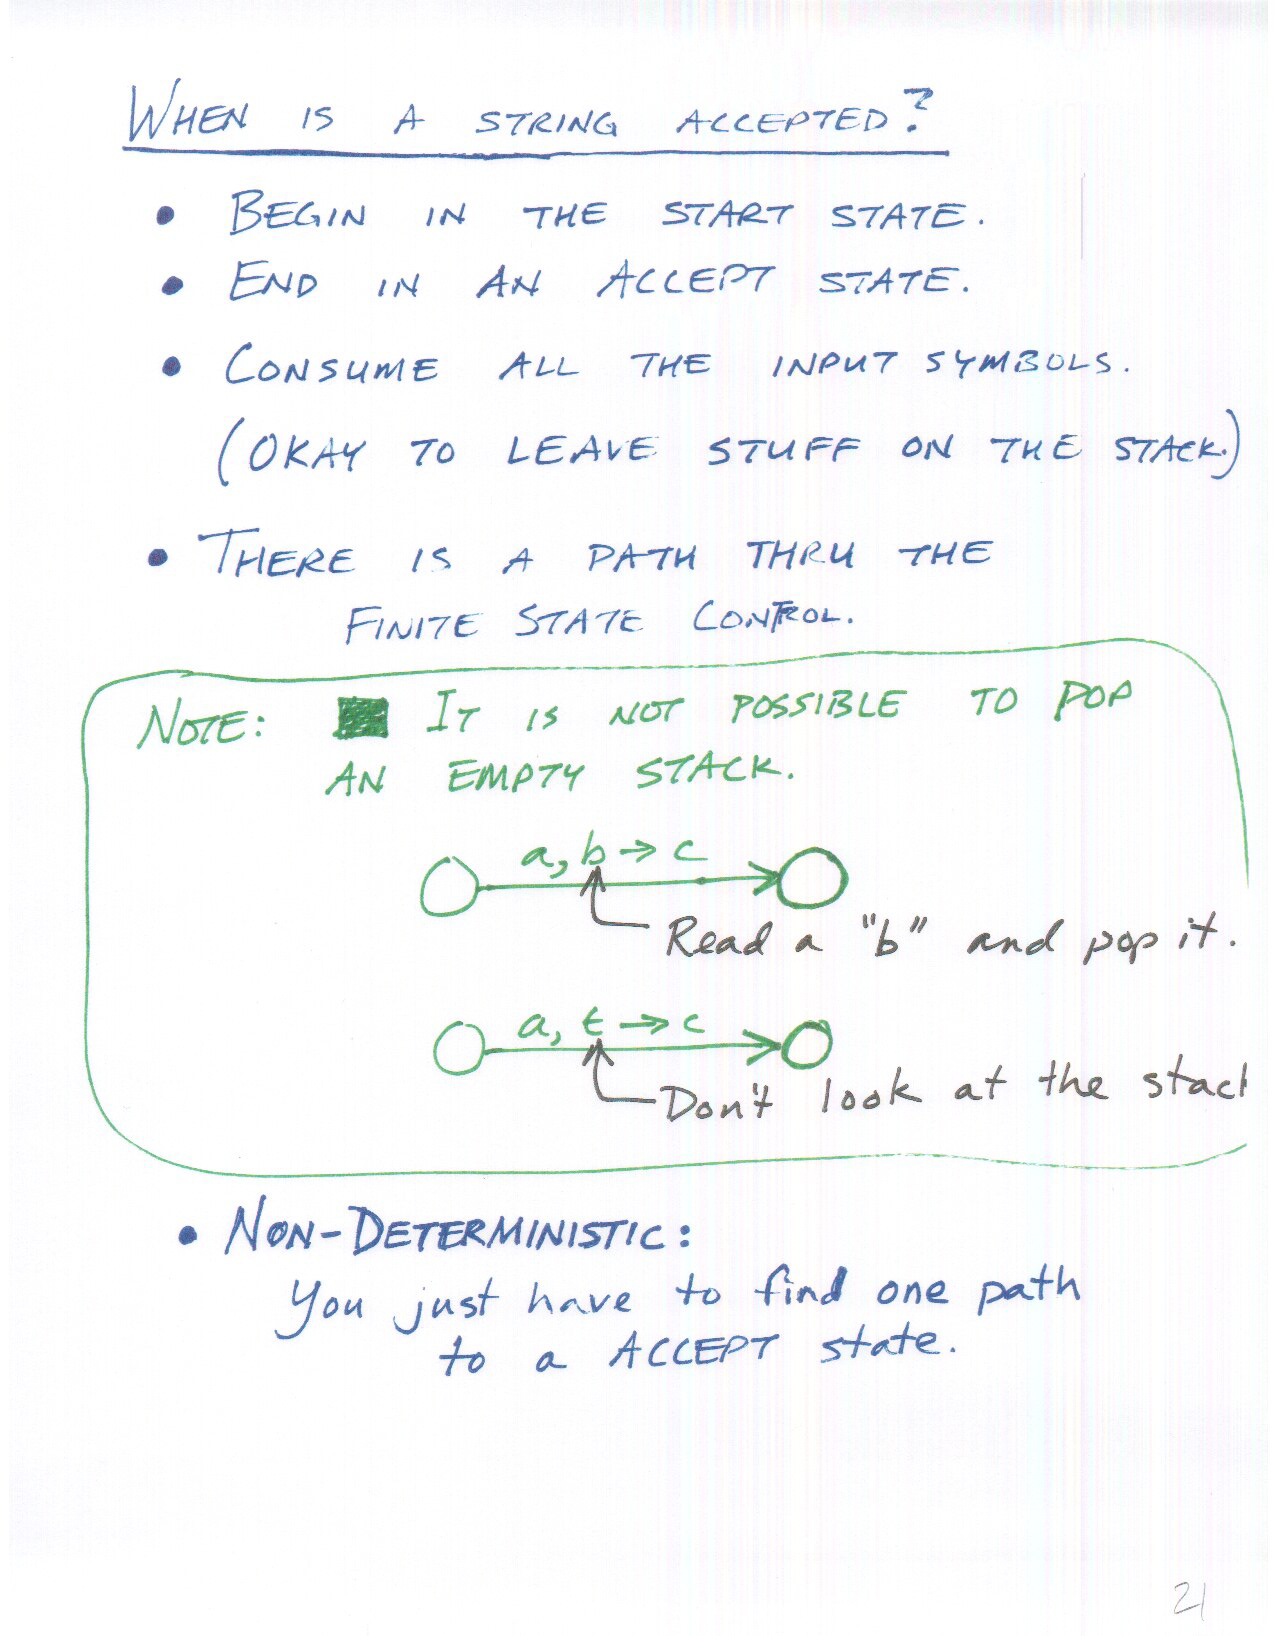 WHEN IS A STRING ACCEPTED?
• BEGIN IN THE START STATE.
• END IN AN ACCEPT STATE.
• CONSUME ALL THE INPUT SYMBOLS.
(OKAY TO LEAVE STUFF ON THE STACK.)
• THERE IS A PATH THRU THE
FINITE STATE CONTROL.
NOTE: IT IS NOT POSSIBLE TO POP
AN EMPTY STACK.
a, b → c
Read a "b" and pop it.
a, ε → c
Don't look at the stack
• NON-DETERMINISTIC:
You just have to find one path
to a ACCEPT state.
21